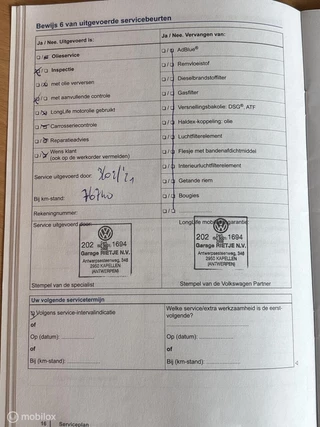 Bewijs 6 van uitgevoerde servicebeurten
Ja / Nee. Uitgevoerd is:
Olieservice
Inspectie
met olie verversen
met aanvullende controle
LongLife motorolie gebruikt
Carrosseriecontrole
Reparatieadvies
Wens klant
(ook op de werkorder vermelden)
Service uitgevoerd door:
Bij km-stand:
Rekeningnummer:
Service uitgevoerd door:
202 1694
Garage RIETJE N.V.
Antwerpsesteenweg, 248
2950 KAPELLEN
(ANTWERPEN)
Stempel van de specialist
Ja / Nee. Vervangen van:
AdBlue®
Remvloeistof
Dieselbrandstoffilter
Gasfilter
Versnellingsbakolie: DSG®, ATF
Haldex-koppeling: olie
Luchtfilterelement
Flesje met bandenafdichtmiddel
Interieurluchtfilterelement
Getande riem
Bougies
LongLife mobiliteitsgarantie:
202 1694
Garage RIETJE N.V.
Antwerpsesteenweg, 248
2950 KAPELLEN
(ANTWERPEN)
Stempel van de Volkswagen Partner
Uw volgende servicetermijn
Volgens service-intervalindicatie
of
Op (datum):
of
Bij (km-stand):
Welke service/extra werkzaamheid is de eerst-
volgende?
Op (datum):
of
Bij (km-stand):
16 Serviceplan
© mobilox